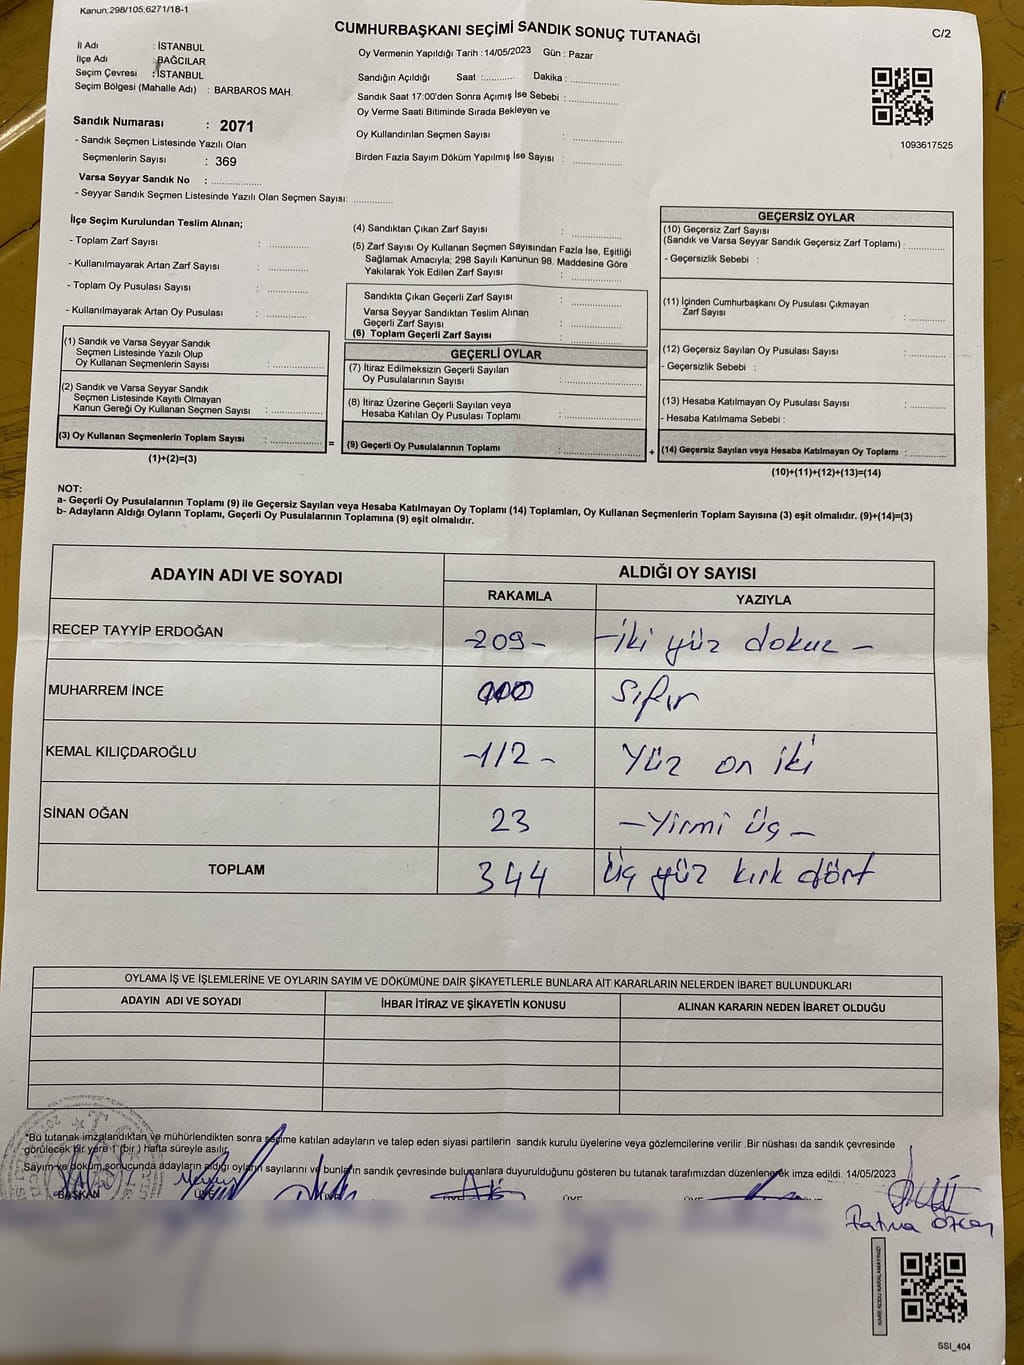 Kanun;298/105;6271/18-1
CUMHURBAŞKANI SEÇİMİ SANDIK SONUÇ TUTANAĞI
C/2
İl Adı : İSTANBUL
İlçe Adı : BAĞCILAR
Seçim Çevresi : İSTANBUL
Seçim Bölgesi (Mahalle Adı) : BARBAROS MAH.
Sandık Numarası : 2071
- Sandık Seçmen Listesinde Yazılı Olan
Seçmenlerin Sayısı : 369
Varsa Seyyar Sandık No : ................
- Seyyar Sandık Seçmen Listesinde Yazılı Olan Seçmen Sayısı: ............
Oy Vermenin Yapıldığı Tarih : 14/05/2023 Gün : Pazar
Sandığın Açıldığı Saat :.......... Dakika : ................
Sandık Saat 17:00'den Sonra Açımış İse Sebebi : ................
Oy Verme Saati Bitiminde Sırada Bekleyen ve
Oy Kullandırılan Seçmen Sayısı : ................
Birden Fazla Sayım Döküm Yapılmış İse Sayısı : ................
1093617525
İlçe Seçim Kurulundan Teslim Alınan;
- Toplam Zarf Sayısı : ............
- Kullanılmayarak Artan Zarf Sayısı : ............
- Toplam Oy Pusulası Sayısı : ............
- Kullanılmayarak Artan Oy Pusulası : ............
(1) Sandık ve Varsa Seyyar Sandık
Seçmen Listesinde Yazılı Olup
Oy Kullanan Seçmenlerin Sayısı : ................
(2) Sandık ve Varsa Seyyar Sandık
Seçmen Listesinde Kayıtlı Olmayan
Kanun Gereği Oy Kullanan Seçmen Sayısı : ................
(3) Oy Kullanan Seçmenlerin Toplam Sayısı : ................
(1)+(2)=(3)
=
(4) Sandıktan Çıkan Zarf Sayısı : ................
(5) Zarf Sayısı Oy Kullanan Seçmen Sayısından Fazla İse, Eşitliği
Sağlamak Amacıyla; 298 Sayılı Kanunun 98. Maddesine Göre
Yakılarak Yok Edilen Zarf Sayısı : ................
Sandıkta Çıkan Geçerli Zarf Sayısı : ................
Varsa Seyyar Sandıktan Teslim Alınan
Geçerli Zarf Sayısı : ................
(6) Toplam Geçerli Zarf Sayısı : ................
GEÇERLİ OYLAR
(7) İtiraz Edilmeksizin Geçerli Sayılan
Oy Pusulalarının Sayısı : ................
(8) İtiraz Üzerine Geçerli Sayılan veya
Hesaba Katılan Oy Pusulası Toplamı : ................
(9) Geçerli Oy Pusulalarının Toplamı : ................
+
GEÇERSİZ OYLAR
(10) Geçersiz Zarf Sayısı
(Sandık ve Varsa Seyyar Sandık Geçersiz Zarf Toplamı) : ............
- Geçersizlik Sebebi :
(11) İçinden Cumhurbaşkanı Oy Pusulası Çıkmayan
Zarf Sayısı : ............
(12) Geçersiz Sayılan Oy Pusulası Sayısı : ............
- Geçersizlik Sebebi :
(13) Hesaba Katılmayan Oy Pusulası Sayısı : ............
- Hesaba Katılmama Sebebi :
(14) Geçersiz Sayılan veya Hesaba Katılmayan Oy Toplamı : ............
(10)+(11)+(12)+(13)=(14)
NOT:
a- Geçerli Oy Pusulalarının Toplamı (9) ile Geçersiz Sayılan veya Hesaba Katılmayan Oy Toplamı (14) Toplamları, Oy Kullanan Seçmenlerin Toplam Sayısına (3) eşit olmalıdır. (9)+(14)=(3)
b- Adayların Aldığı Oyların Toplamı, Geçerli Oy Pusulalarının Toplamına (9) eşit olmalıdır.
ADAYIN ADI VE SOYADI ALDIĞI OY SAYISI
RAKAMLA YAZIYLA
RECEP TAYYİP ERDOĞAN -209- -İki yüz dokuz -
MUHARREM İNCE 000 Sıfır
KEMAL KILIÇDAROĞLU -112- Yüz on iki
SİNAN OĞAN 23 -Yirmi üç-
TOPLAM 344 Üç yüz kırk dört
OYLAMA İŞ VE İŞLEMLERİNE VE OYLARIN SAYIM VE DÖKÜMÜNE DAİR ŞİKAYETLERLE BUNLARA AİT KARARLARIN NELERDEN İBARET BULUNDUKLARI
ADAYIN ADI VE SOYADI İHBAR İTİRAZ VE ŞİKAYETİN KONUSU ALINAN KARARIN NEDEN İBARET OLDUĞU
*Bu tutanak imzalandıktan ve mühürlendikten sonra seçime katılan adayların ve talep eden siyasi partilerin sandık kurulu üyelerine veya gözlemcilerine verilir .Bir nüshası da sandık çevresinde
görülecek bir yere 1 (bir) hafta süreyle asılır.
Sayım ve döküm sonucunda adayların aldığı oyların sayılarını ve bunların sandık çevresinde bulunanlara duyurulduğunu gösteren bu tutanak tarafımızdan düzenlenerek imza edildi. 14/05/2023
BAŞKAN ÜYE ÜYE ÜYE ÜYE
Fatma Özcan
KARE KODU KARALAMAYINIZ!
SSI_404